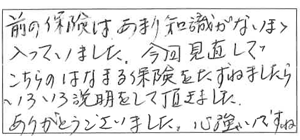 前の保険は あまり知識がないまゝ
入っていました。今回見直しで
こちらのはなまる保険をたずねましたら
いろいろ説明をして頂きました。
ありがとうございました。心強いですね